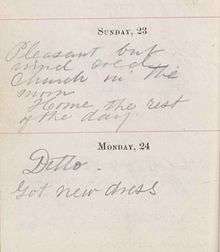 SUNDAY, 23
Pleasant but
wind cold
Church in the
morn
Home the rest
of the day.
MONDAY, 24
Ditto.
Got new dress